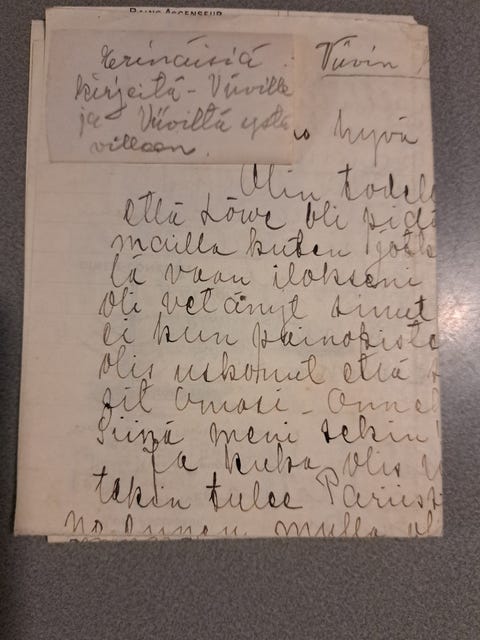 BAINS ASCENSEUR
Erinäisiä
kirjeitä - Viiville
ja Viiviltä ystä
villeen.
Viivin
hyvä
Olin todell
että Löwe oli pidä
mailla kuten jotk
lä vaan ilokseni
oli vetänyt sinut
ei kun painopiste
olis uskonut että
sit omasi - Onnek
Siinä meni sekin
Ja kuka olis
takin tulee Pariist
mulla ol